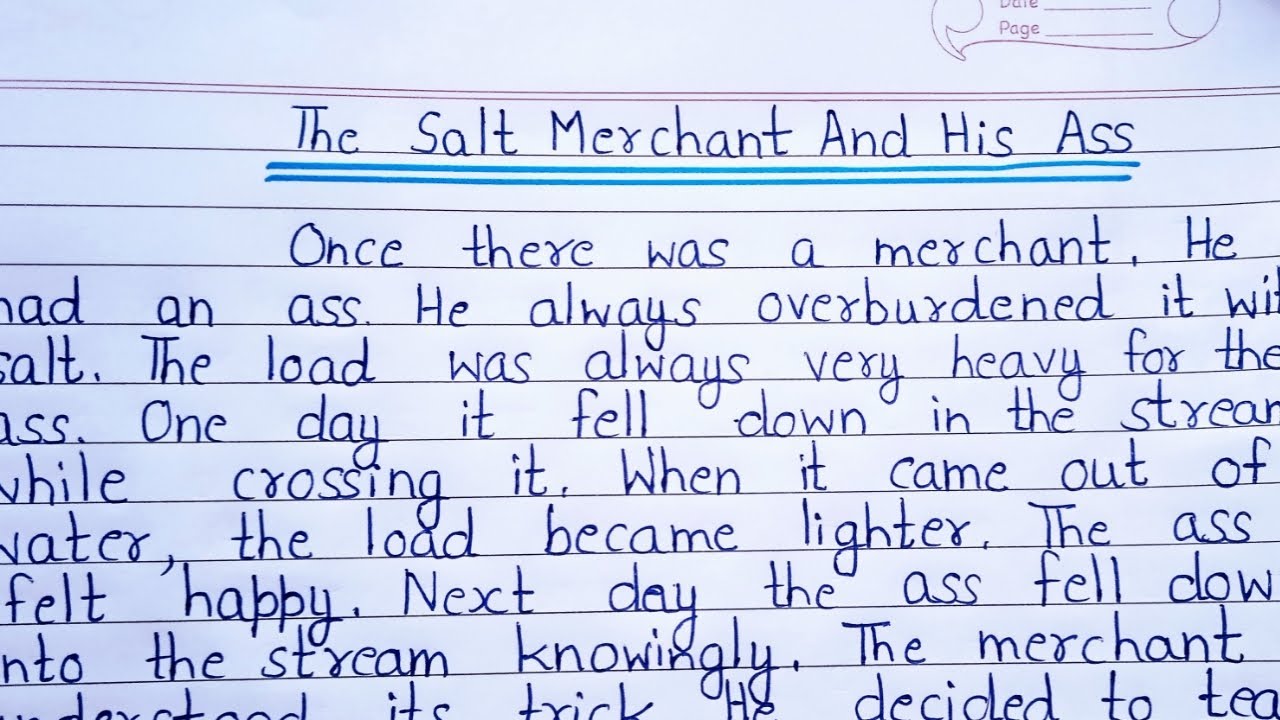 Date
Page
The Salt Merchant And His Ass
Once there was a merchant. He
had an ass. He always overburdened it wit
salt. The load was always very heavy for the
ass. One day it fell down in the strea
while crossing it. When it came out of
water, the load became lighter. The ass
felt happy. Next day the ass fell dow
into the stream knowingly. The merchant
understood its trick. He decided to tea